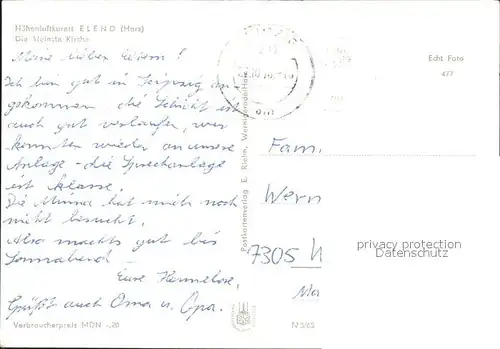 Höhenluftkurort ELEND (Harz)
Die kleinste Kirche
Meine lieben Eltern!
Ich bin gut in Leipzig an-
gekommen die Schicht ist
auch gut verlaufen, wir
konnten wieder an unsere
Anlage - die Sprechanlage
ist klasse.
Die Minna hat mich noch
nicht besucht.
Also machts gut bis
Sonnabend -
Eure Hannelore,
Grüßt auch Oma u. Opa.
Verbraucherpreis MDN -,20
Postkartenverlag E. Riehn, Wernigerode/Harz
IV 5/62
Echt Foto
477
Fam.
Wern
7305
privacy protection
Datenschutz